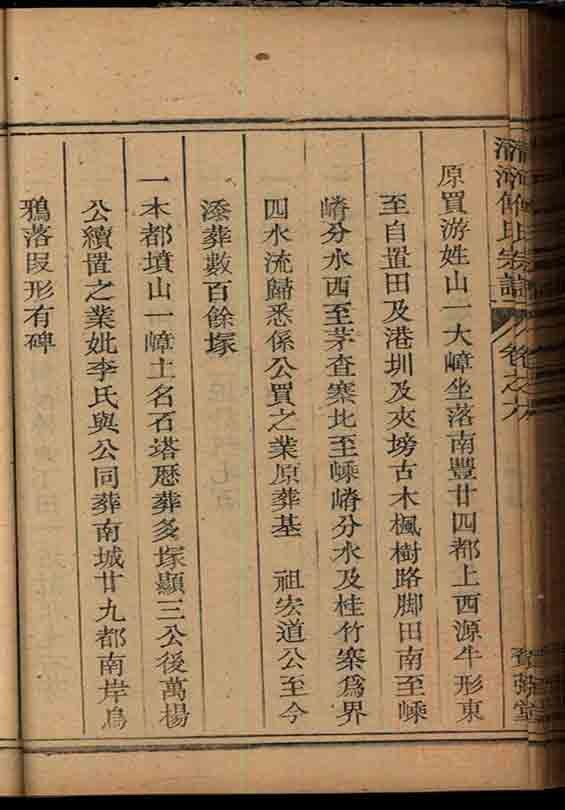 氏宗譜 卷之六 堂
原買游姓山一大嶂坐落南豐廿四都上西源牛形東
至自置田及港圳及夾塝古木楓樹路脚田南至嵊
嵴分水西至茅查寨北至嵊嵴分水及桂竹寨爲界
四水流歸悉係公買之業原葬基 祖宏道公至今
添葬數百餘塚
一本都墳山一嶂土名石塔歷葬多塚顯三公後萬楊
公續置之業妣李氏與公同葬南城廿九都南岸烏
鴉落叚形有碑